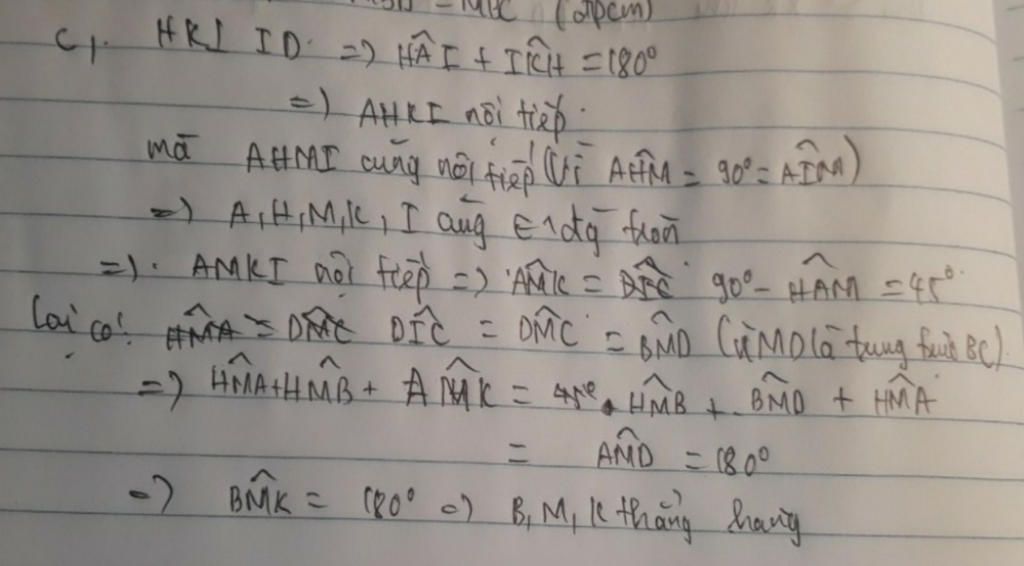 = MBC (đpcm)
c, HK⊥ ID => HÂI + IK̂H = 180°
=) AHKI nội tiếp.
mà AHMI cũng nội tiếp (vì AĤM = 90° = AÎM)
=) A,H,M,K,I cùng ∈ 1 đg tròn
=) AMKI nội tiếp => AM̂K = DÎC 90° - HÂM = 45°
Lại có: HM̂A = DM̂C DÎC = DM̂C = BM̂D (vì MD là trung trực BC)
=) HM̂A + HM̂B + AM̂K = 45° + HM̂B + BM̂D + HM̂A
= AM̂D = 180°
=) BM̂K = 180° =) B, M, K thẳng hàng